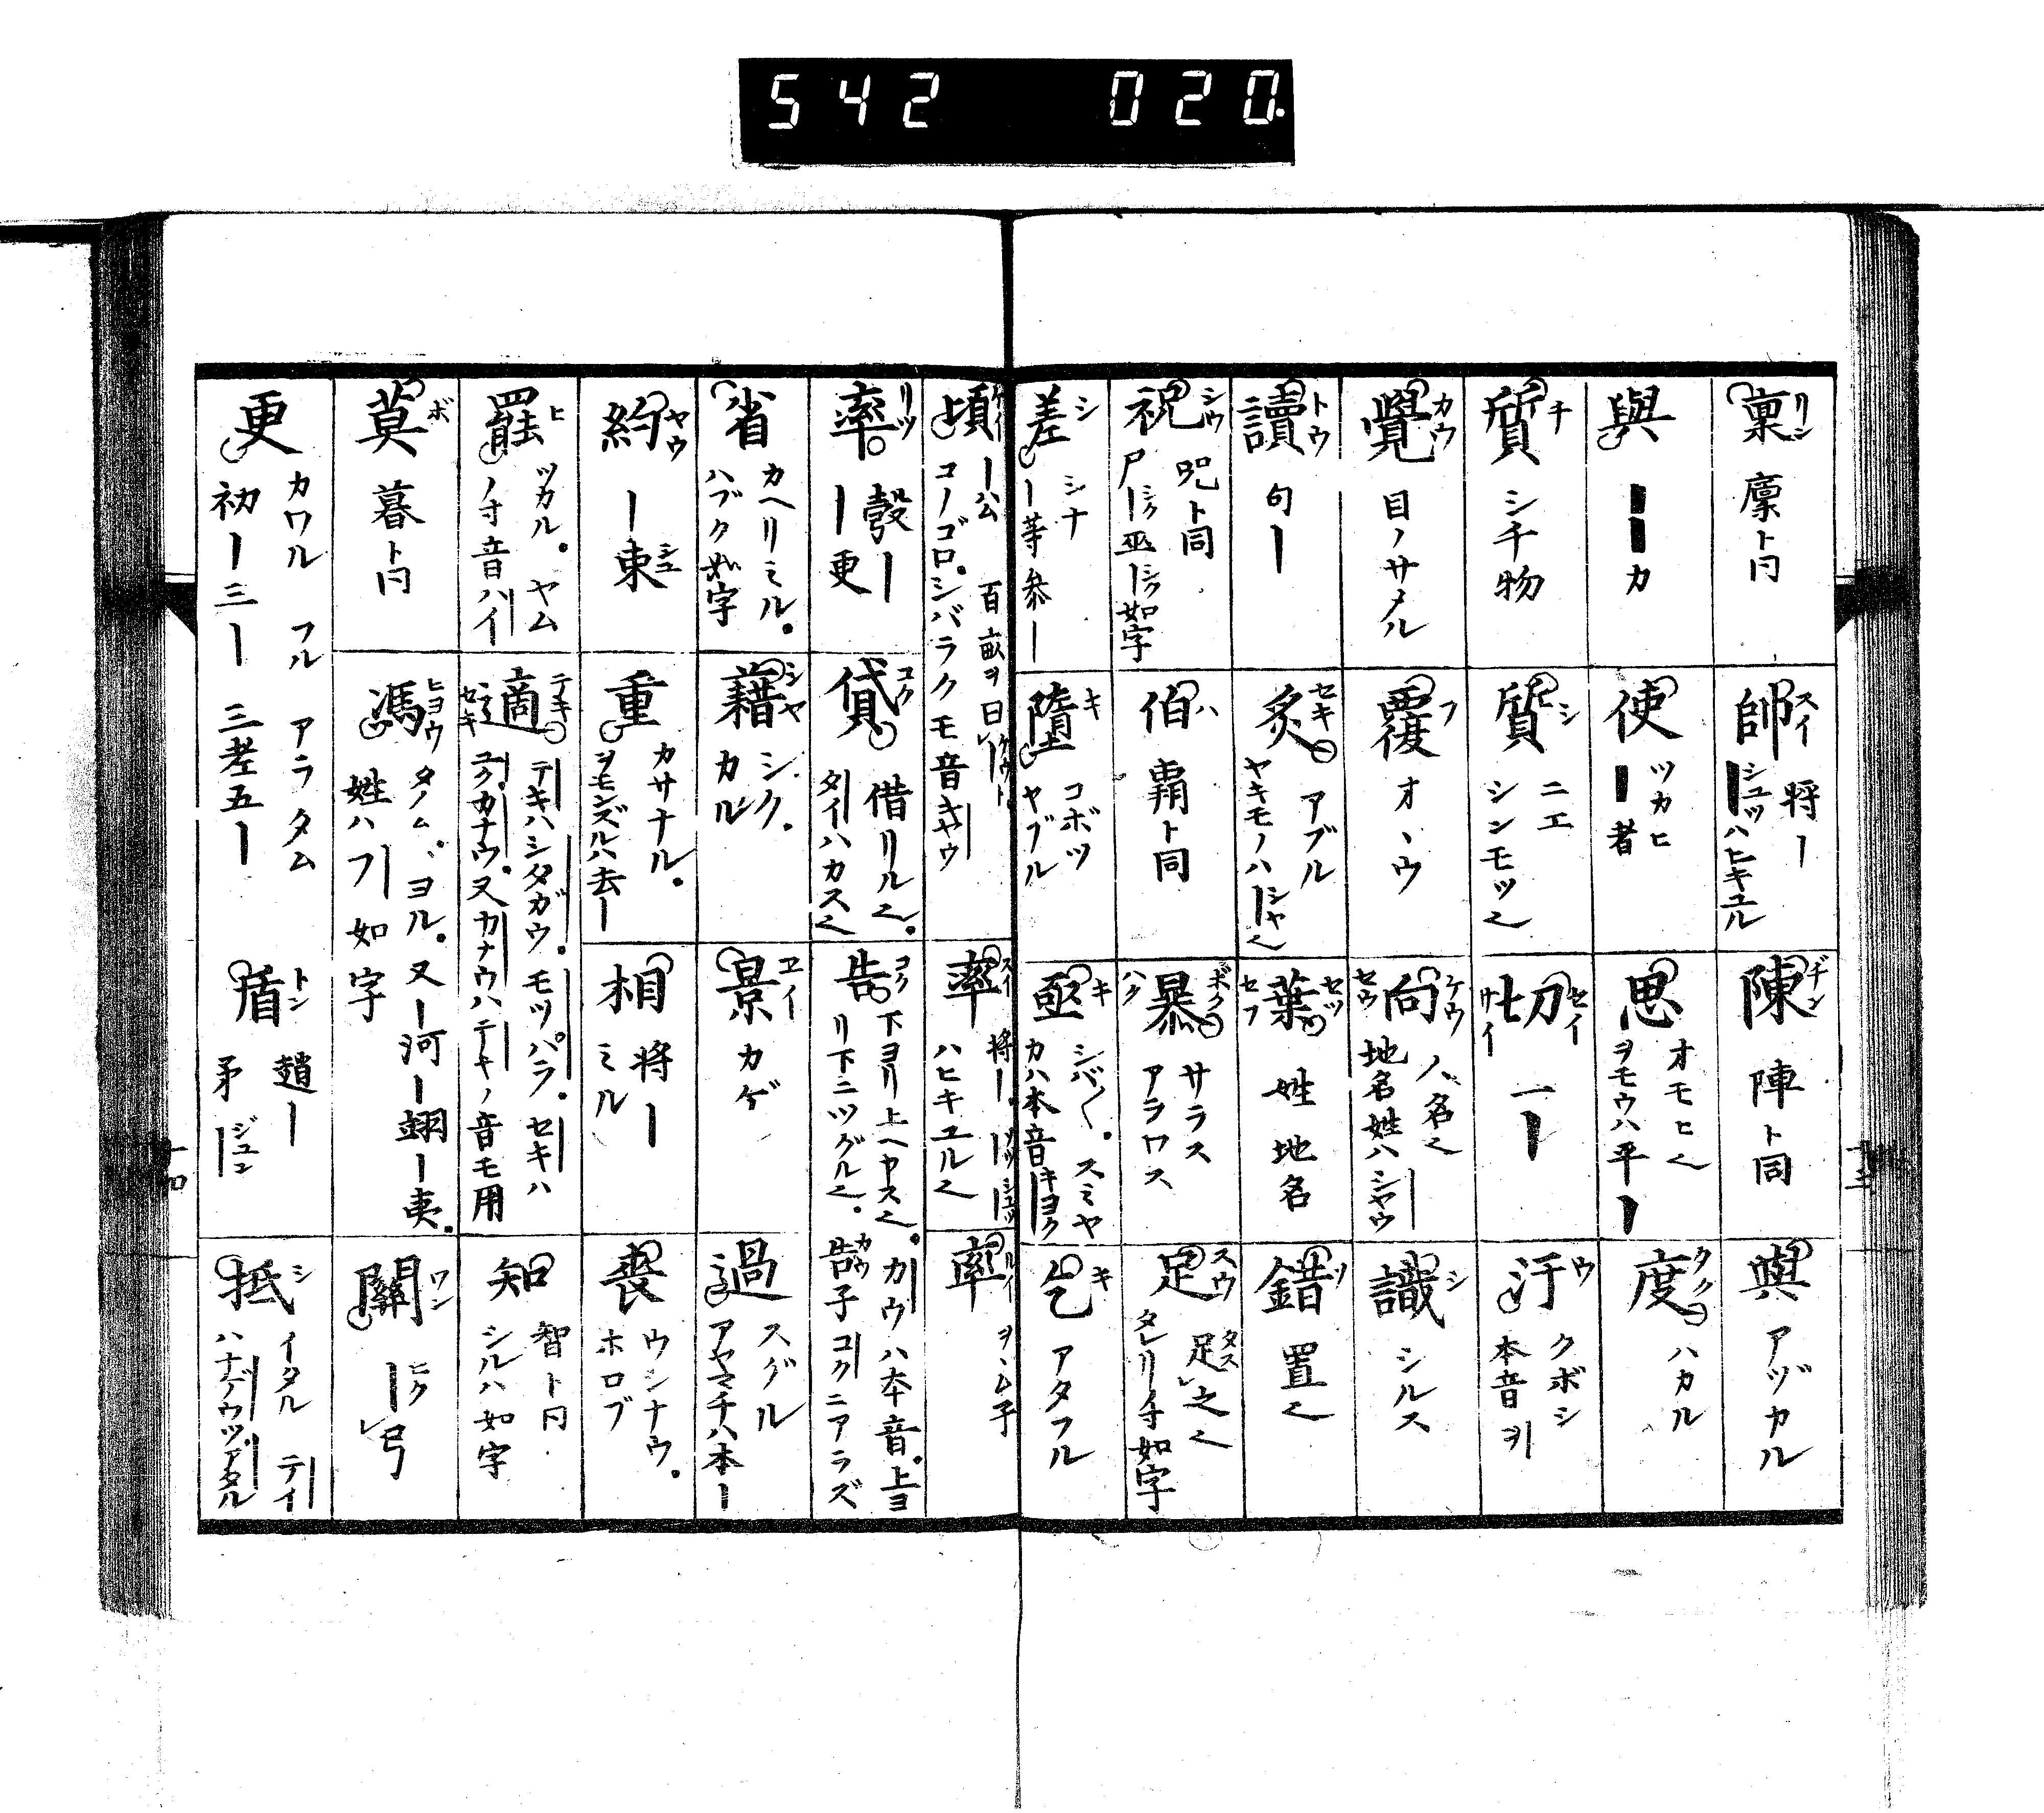 542 020.
稟 リン 廩ト同
帥 スイ 将ー シュツハヒキユル
陳 ヂン 陣ト同
與 アヅカル
與 ーーカ
使 ツカヒ ー者
思 オモヒ〆 ヲモウハ平ー
度 タク ハカル
質 チ シチ物
質 シ ニエ シンモツ〆
切 セイ サイ 一ー
汙 ウ クボシ 本音ヲ
覺 カウ 目ノサメル
覆 フ オヽウ
向 ケウ セウ 人名〆 地名姓ハシヤウ
識 シ シルス
讀 トウ 句ー
炙 セキ アブル ヤキモノハシヤ〆
葉 セツ セフ 姓 地名
錯 ソ 置〆
祝 シウ 呪ト同 尸ーシク巫ーシク如字
伯 ハ 覇ト同
暴 ボク ハク サラス アラワス
足 スウ 足タス之〆 タレリノ寸如字
差 シ シナ ー等 參ー
隋 キ コボツ ヤブル
亟 キ シバ〱。スミヤカハ本音キヨク
乞 キ アタフル
頃 ケイ ー公 百畝ヲ曰ーケウト コノゴロ。シバラクモ音キヤウ
率 スイ 将ー。 ハヒキユル〆
率 ルイ
率 リツ 彀ー ー更
貸 コク 借リル〆。 タイハカス〆
告 コク 下ヨリ上ヘヤス〆。カウハ本音。上ヨリ下ニツグル〆。告カウ子コクニアラズ
省 カヘリミル。 ハブク如字
藉 シヤ シク。 カル
景 エイ カゲ
過 スグル アヤマチハ本ー
約 ヤウ ー束シヱ
重 カサナル。 ヲモンズルハ去ー
相 将ー ミル
喪 ウシナウ。 ホロブ
罷 ヒ ツカル。ヤムノ寸音ハイ
適 テキ セキ テキハシタガウ。モツパラ。セキハユク。カナウ。又カナウハテキノ音モ用
知 智ト同 シルハ如字
莫 ボ 暮ト同
馮 ヒヨウ タノム。ヨル。又ー河ー翊ー夷。姓ハフ如字
關 ワン ーヒク弓
更 カワル フル アラタム 初ー三ー 三老五ー
盾 トン 趙ー 矛ージユン
抵 シ イタル テイ ハナゲウツ。アタル